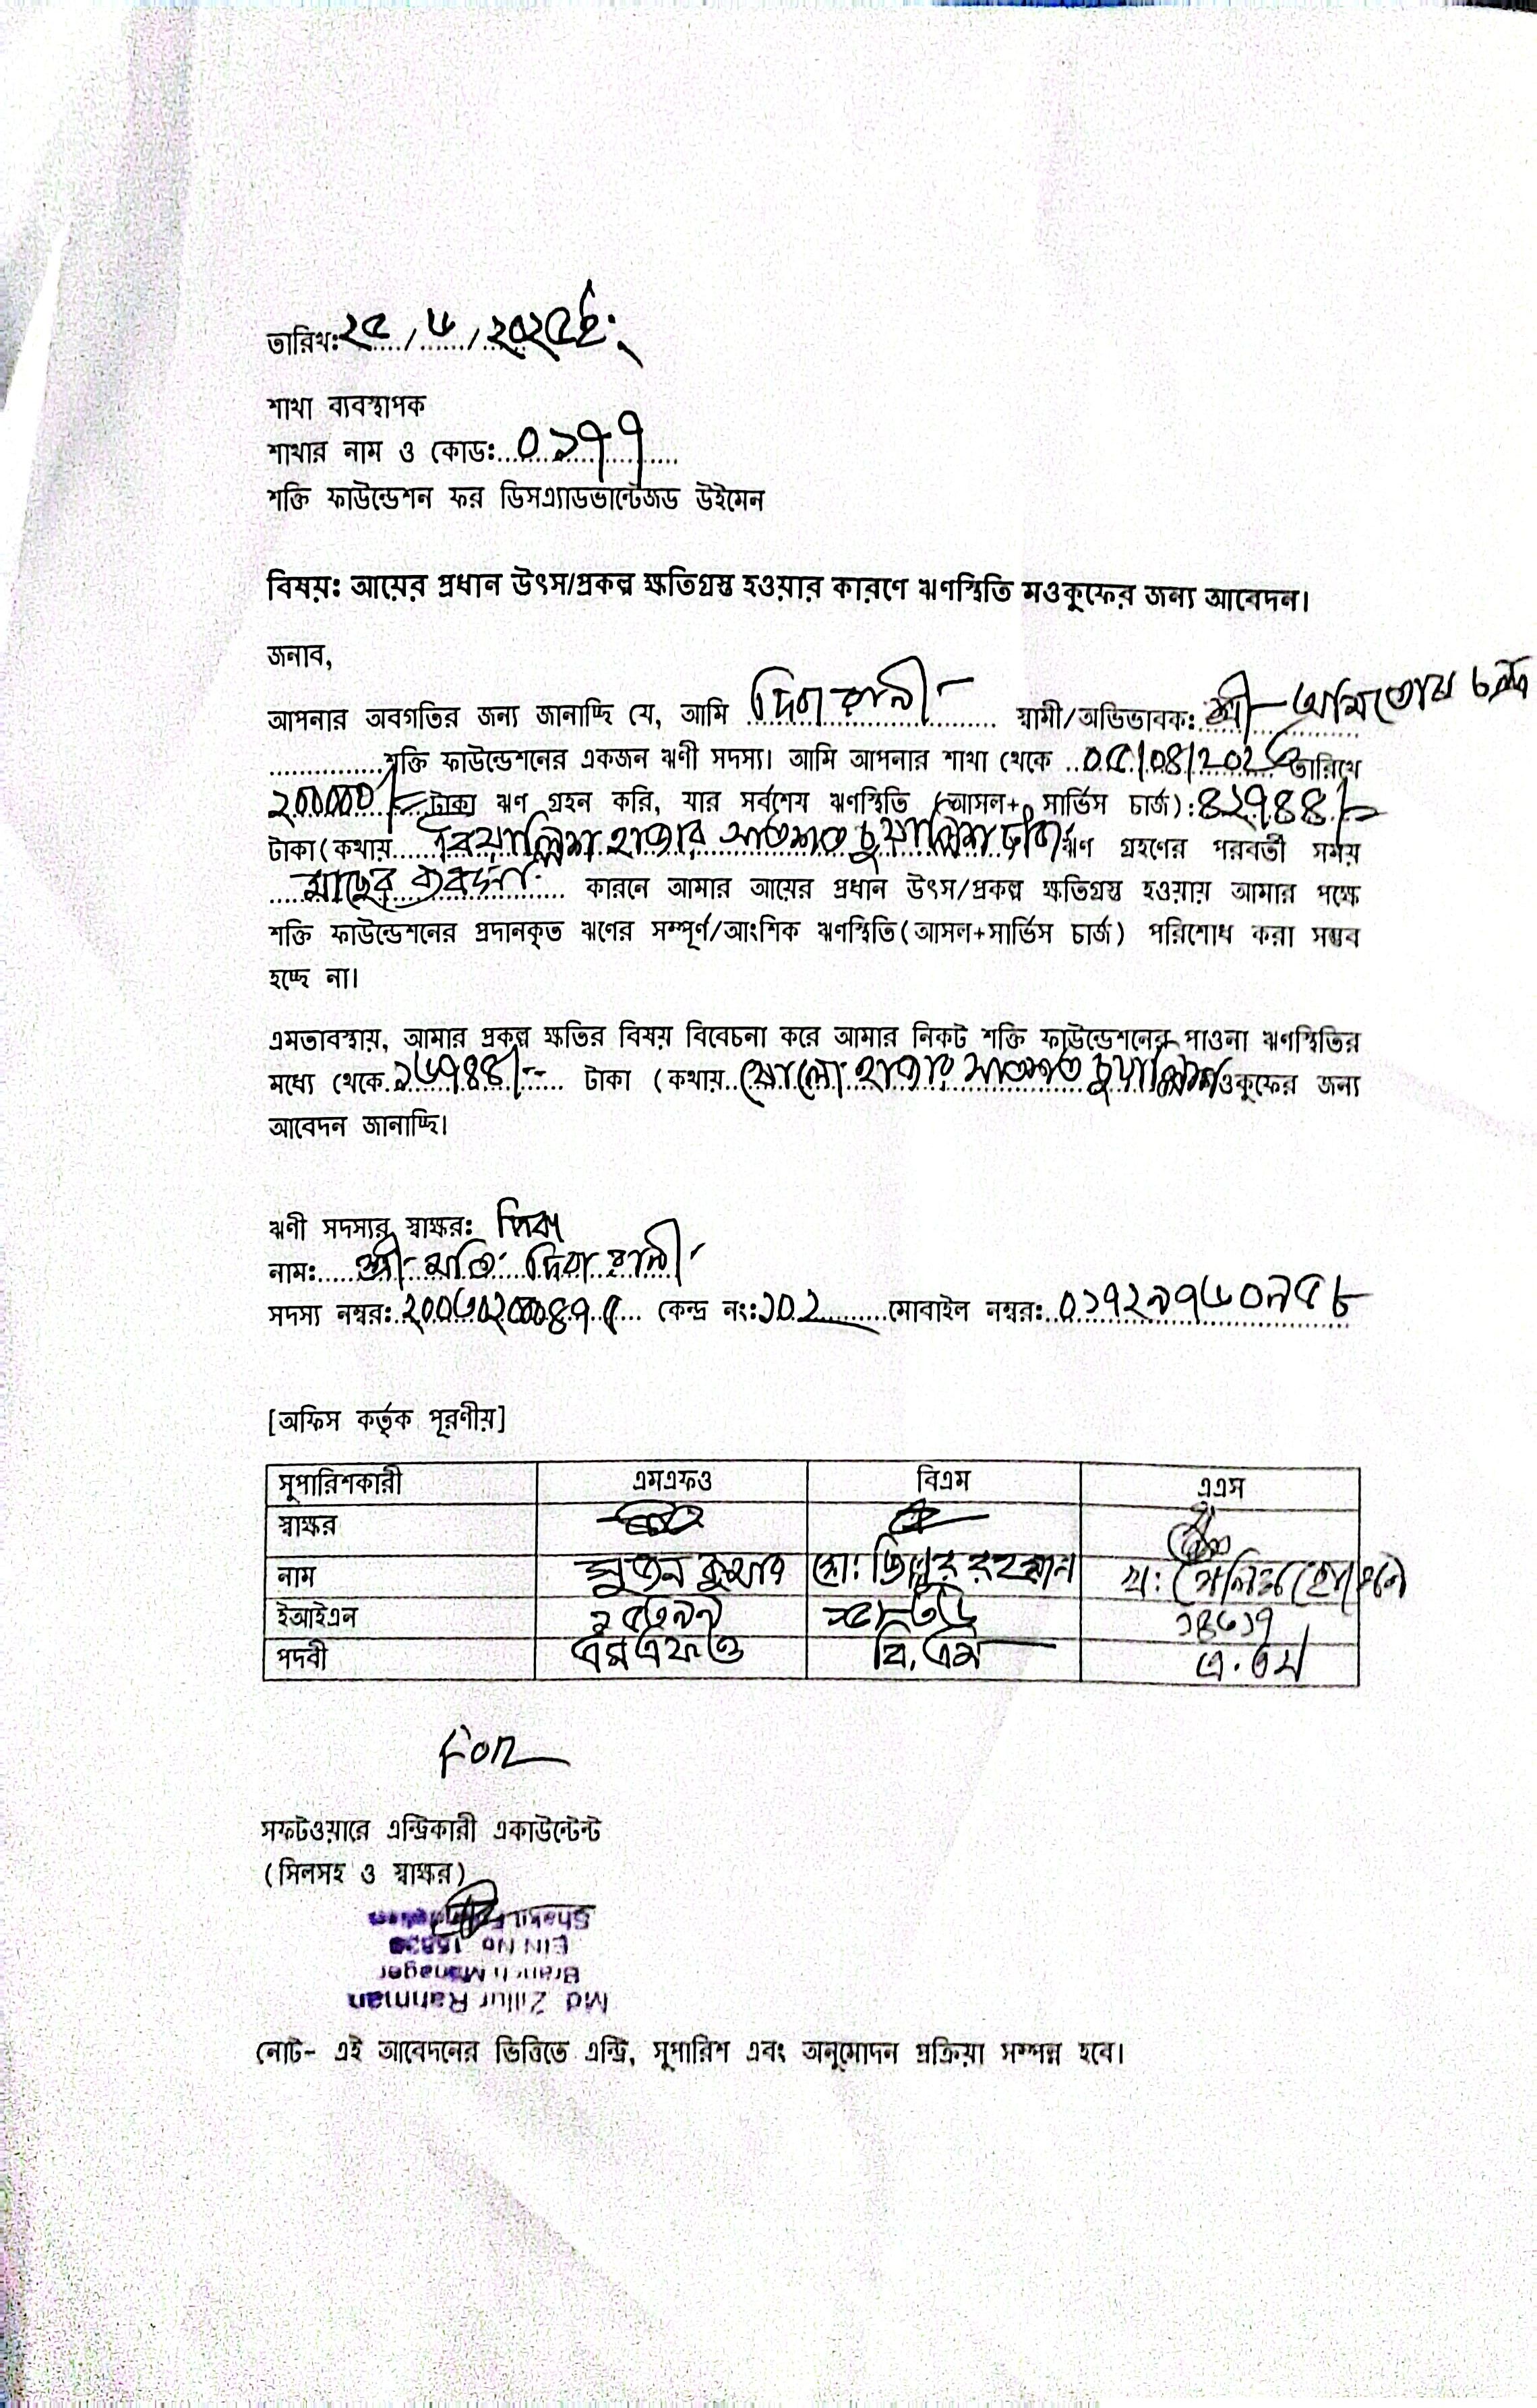 তারিখঃ ২৫/৬/২০২৫ ইং
শাখা ব্যবস্থাপক
শাখার নাম ও কোডঃ ০১৭৭
শক্তি ফাউন্ডেশন ফর ডিসএ্যাডভান্টেজড উইমেন
বিষয়ঃ আয়ের প্রধান উৎস/প্রকল্প ক্ষতিগ্রস্ত হওয়ার কারণে ঋণস্থিতি মওকুফের জন্য আবেদন।
জনাব,
আপনার অবগতির জন্য জানাচ্ছি যে, আমি দিবা রানী স্বামী/অভিভাবকঃ শ্রী অমিতোষ চন্দ্র
শক্তি ফাউন্ডেশনের একজন ঋণী সদস্য। আমি আপনার শাখা থেকে তারিখে
২০০০০০/= টাকা ঋণ গ্রহন করি, যার সর্বশেষ ঋণস্থিতি (আসল+ সার্ভিস চার্জ):৪২৭৪৪/=
টাকা(কথায় বিয়াল্লিশ হাজার সাতশত চুয়াল্লিশ টাকা ঋণ গ্রহণের পরবর্তী সময়
মাছের ব্যবসা কারনে আমার আয়ের প্রধান উৎস/প্রকল্প ক্ষতিগ্রস্ত হওয়ায় আমার পক্ষে
শক্তি ফাউন্ডেশনের প্রদানকৃত ঋণের সম্পূর্ণ/আংশিক ঋণস্থিতি(আসল+সার্ভিস চার্জ) পরিশোধ করা সম্ভব
হচ্ছে না।
এমতাবস্থায়, আমার প্রকল্প ক্ষতির বিষয় বিবেচনা করে আমার নিকট শক্তি ফাউন্ডেশনের পাওনা ঋণস্থিতির
মধ্যে থেকে ১৬৭৪৪/= টাকা (কথায় ষোলো হাজার সাতশত চুয়াল্লিশ মওকুফের জন্য
আবেদন জানাচ্ছি।
ঋণী সদস্যর স্বাক্ষরঃ দিবা
নামঃ শ্রী মতি দিবা রানী
সদস্য নম্বরঃ কেন্দ্র নংঃ ১০২ মোবাইল নম্বরঃ ০১৭২৯৭৬০৯৫৮
[অফিস কর্তৃক পূরণীয়]
সুপারিশকারী এমএফও বিএম এএস
স্বাক্ষর
নাম সুজন কুমার মোঃ জিল্লুর রহমান মোঃ সেলিম হোসেন
ইআইএন ১৪৬১৭
পদবী এমএফও বি.এম এ.এস
For
সফটওয়ারে এন্ট্রিকারী একাউন্টেন্ট
(সিলসহ ও স্বাক্ষর)
Md Zillur Rahman
Branch Manager
EIN No
Shakti Foundation
নোট- এই আবেদনের ভিত্তিতে এন্ট্রি, সুপারিশ এবং অনুমোদন প্রক্রিয়া সম্পন্ন হবে।